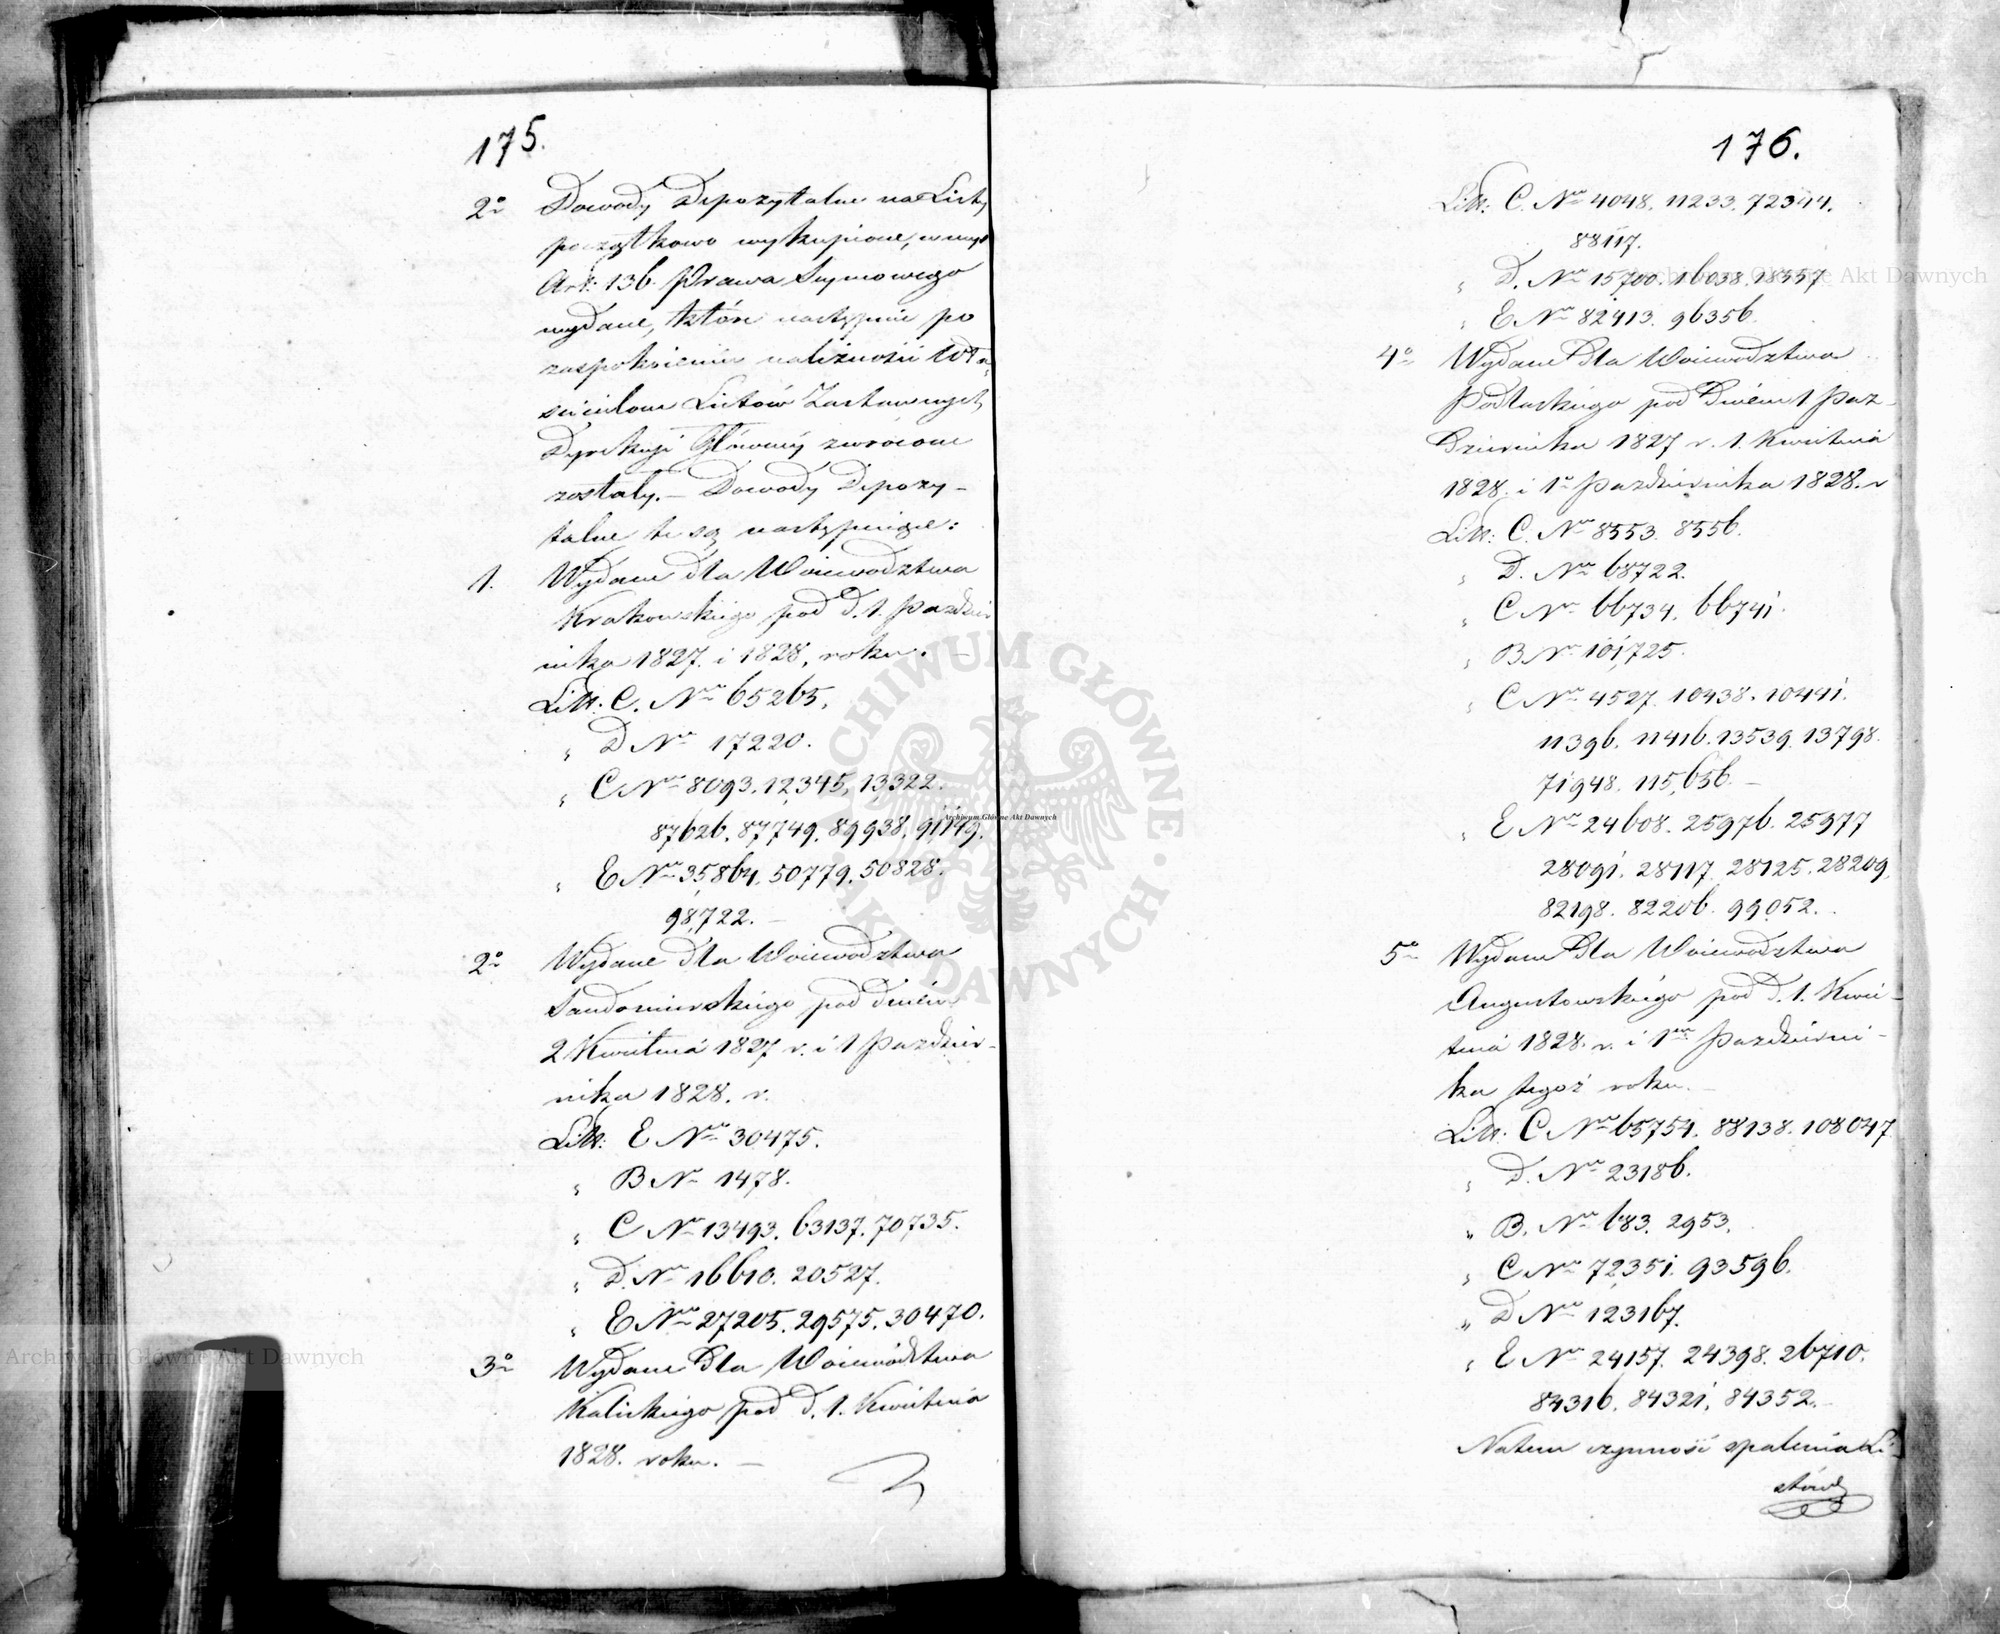 175.
2o Dowody Depozytalne na Listy
początkowo wykupione, w myśl
Art: 136. Prawa Seymowego
wydane, które następnie po
zaspokoieniu należności Wła-
ścicielom Listów Zastawnych
Dyrekcyi Główney zwrócone
zostały. — Dowody Depozy-
talne te są następuiące:
1. Wydane dla Woiewodztwa
Krakowskiego pod d. 1. Paździer
nika 1827. i 1828. roku. —
Litt: C. Nro 65265.
" D Nro 17220.
" C Nro 8093. 12,345, 13,322.
87626. 87749. 89938. 91149.
" E Nro 35,864. 50779. 50828.
98,722. —
2o Wydane dla Woiewodztwa
Sandomierskiego pod dniem
2 Kwietnia 1827 r. i 1 Paździer-
nika 1828. r.
Litt: E Nro 30475.
" B Nro 1478.
" C Nro 13493. 63137. 70735.
" D. Nro 16610. 20527.
" E Nro 27205. 29575. 30470.
3o Wydane dla Woiewództwa
Kaliskiego pod d. 1. Kwietnia
1828. roku. —
176.
Litt: C. Nro 4048. 11233. 72344.
88117.
" D. Nro 15700. 16038. 18557
" E Nro 82413. 96356.
4o Wydane dla Woiewodztwa
Podlaskiego pod Dniem 1 Paz-
dziernika 1827 r. 1. Kwietnia
1828. i 1o Pazdziernika 1828. r
Litt: C. Nro 8553. 8556.
" D. Nro 68722.
" C Nro 66734. 66741.
" B Nro 101,725.
" C Nro 4527. 10438. 10441.
11396. 11416. 13539. 13798.
71948. 115,656. —
" E Nro 24608. 25976. 25977
28091. 28117. 28125. 28209.
82198. 82206. 99,052.
5o Wydane dla Woiewodztwa
Augustowskiego pod d. 1. Kwie-
tnia 1828. r. i 1go Pazdzierni-
ka tegoż roku. —
Litt. C Nro 65754. 88138. 108047
" D. Nro 23186.
" B. Nro 683. 2953.
" C Nro 72,351. 93596.
" D Nro 123167.
" E Nro 24157. 24398. 26710.
84316. 84321. 84352. —
Na tem czynność spalenia Li-
stów
Archiwum Główne Akt Dawnych
Archiwum Główne Akt Dawnych
Archiwum Główne Akt Dawnych
ARCHIWUM GŁÓWNE · AKT DAWNYCH ·